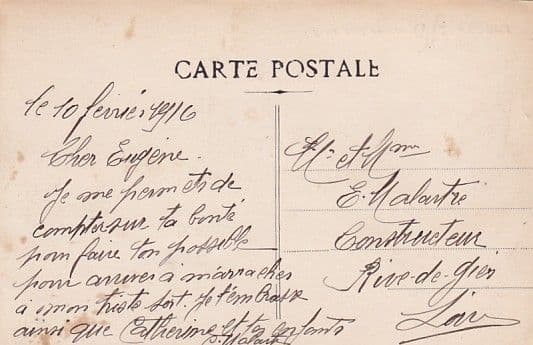 CARTE POSTALE
le 10 février 1916
Cher Eugène.
Je me permets de
compter sur ta bonté
pour faire ton possible
pour arriver a m'arracher
à mon triste sort. Je t'embrasse
ainsi que Catherine et tes enfants
Malartre
Mr et Mme
E. Malartre
Constructeur
Rive-de-Gier
Loire